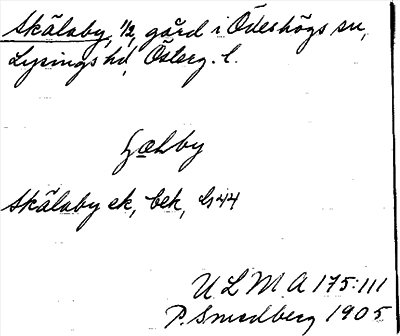 Skålaby, 1/2, gård i Ödeshögs sn,
Lysings hd, Österg. l.
Skålaby ek, bek, G 44
U L M A 175:111
P. Smedberg 1905